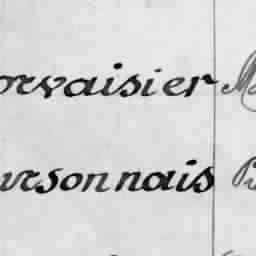 orvaisier
ursonnais